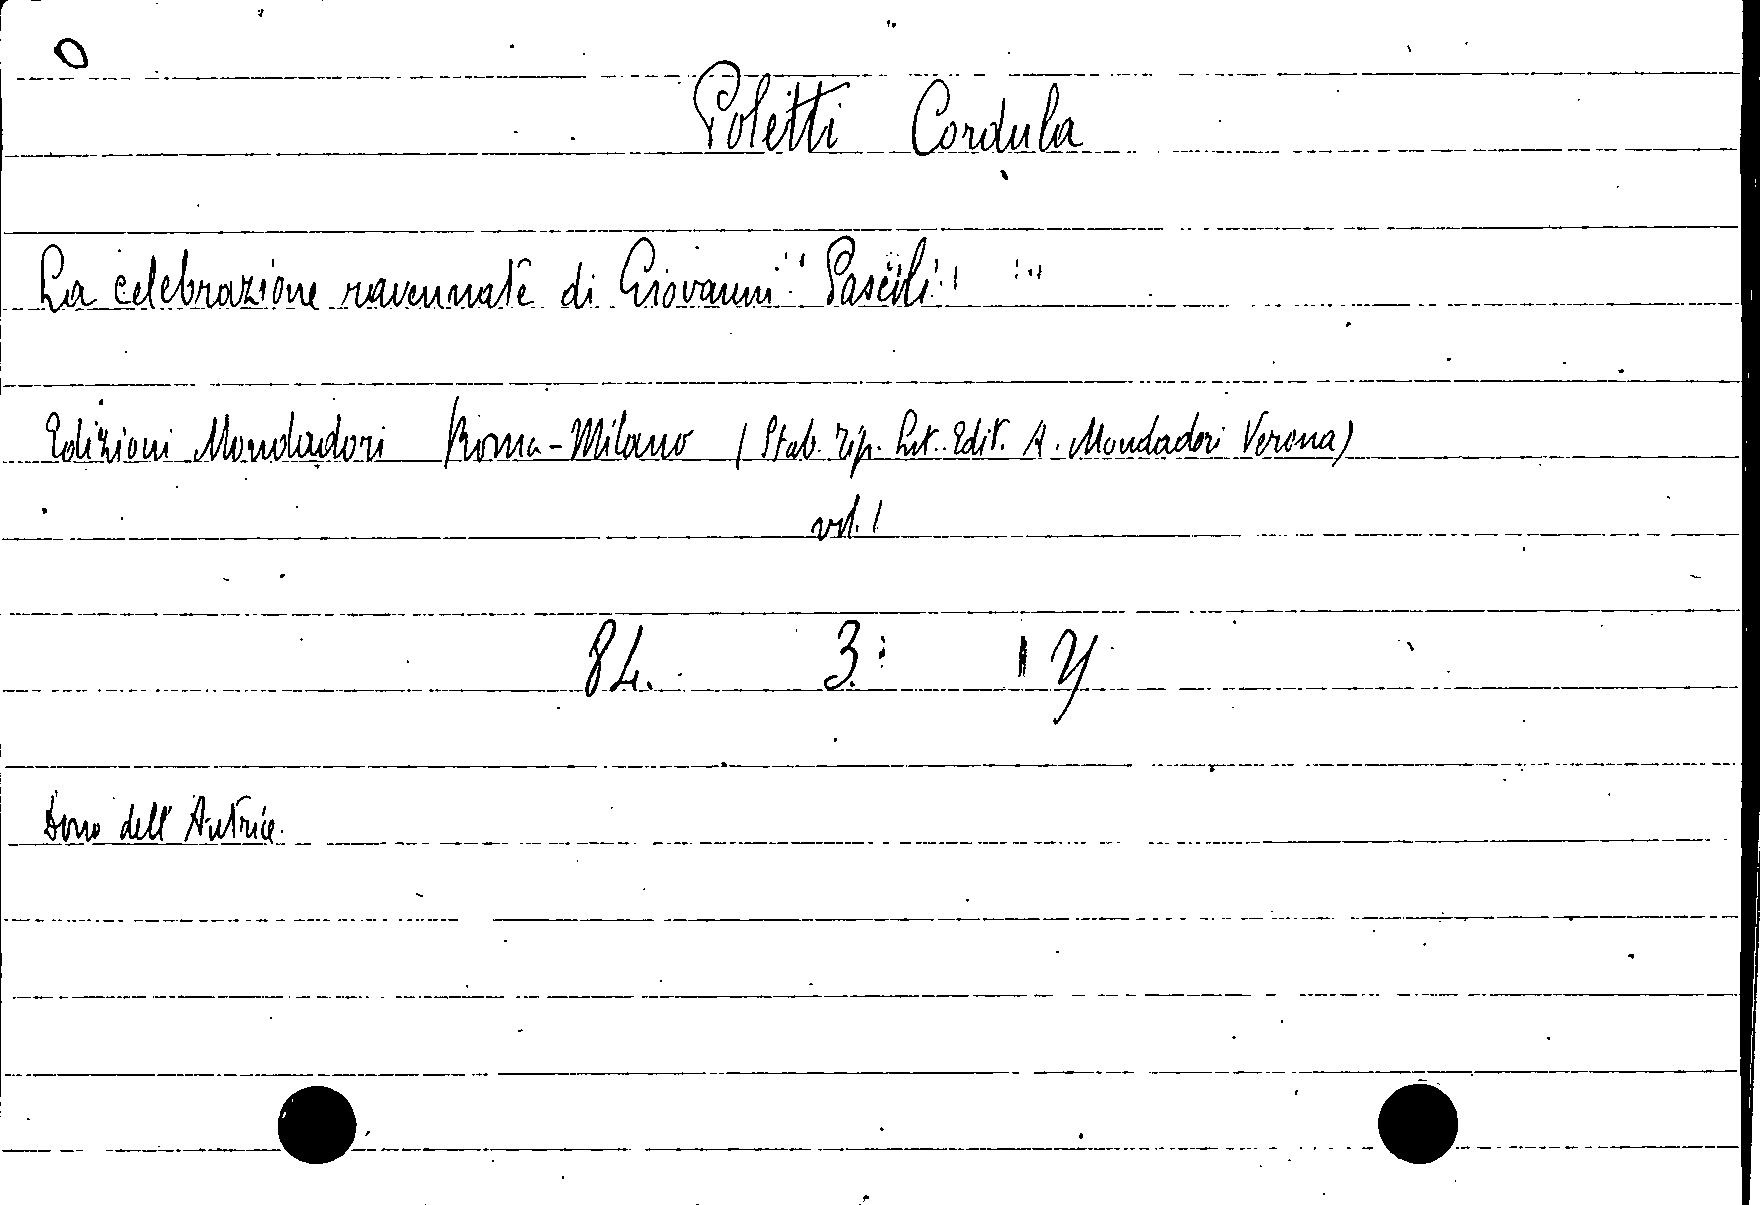 O
Poletti Cordula
La celebrazione ravennate di Giovanni Pascoli
Edizioni Mondadori Roma-Milano (Stab. Tip. Lit. Edit. A. Mondadori Verona)
vol. 1
84. 3. 1 Y
Dono dell'Autrice.